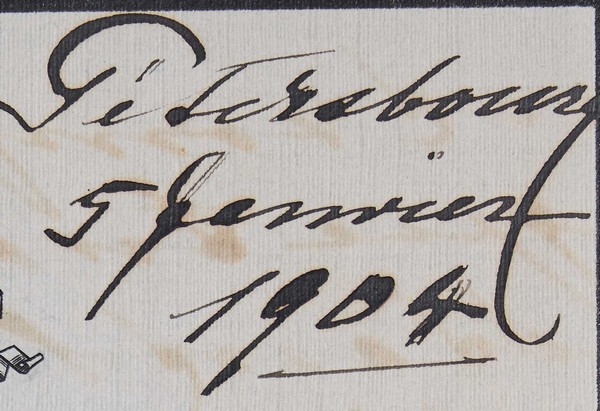 Pétersbourg
5 Janvier
1904